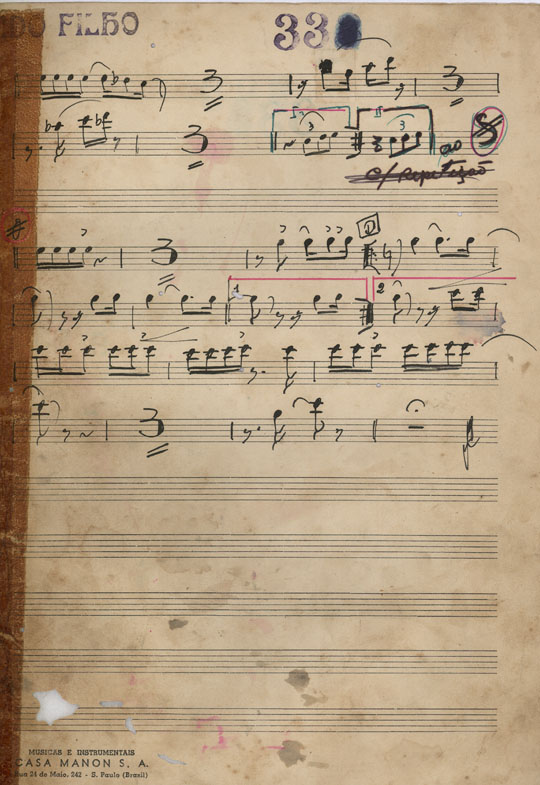 DO FILHO 33
3 3
3 3 3
I II ao
c/ Repetição
3 D
1 2
3
MUSICAS E INSTRUMENTAIS
CASA MANON S. A.
Rua 24 de Maio, 242 - S. Paulo (Brasil)